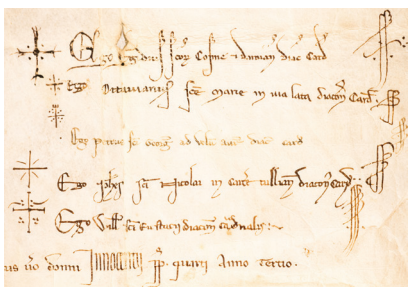 Ego Egidius scõꝝ Cosme ⁊ Damiani diac̃ Card
Ego Octauianus sc̃e Marie in uia lata diacon̄ Card.
Ego Petrus sc̃i Georgii ad uelu aureũ diac̃ card
Ego Joh̃es sc̃i Nicolai in carc̃e tulliañ diacon̄ Card.
Ego Will̃s sc̃i Eustachii diacon̄ Cardinalis:
ũo domni Innocentii pp̃. quarti Anno Tertio.